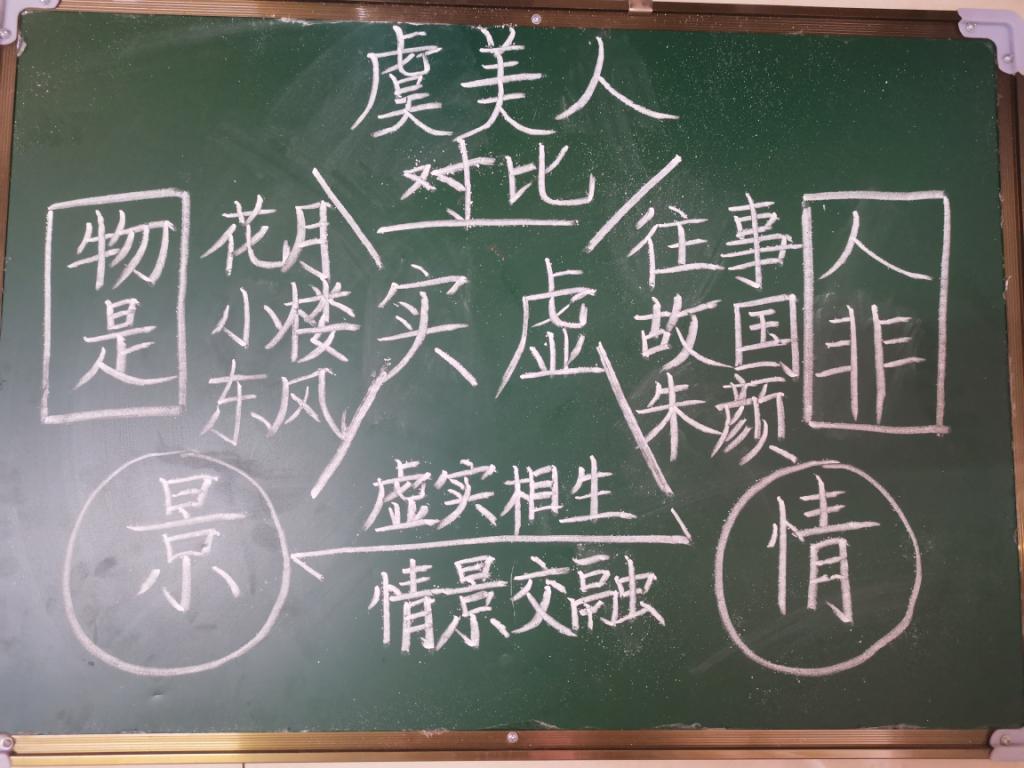 虞美人
对比
物是
花月
小楼
东风
实
虚
往事
故国
朱颜
人非
景
虚实相生
情景交融
情